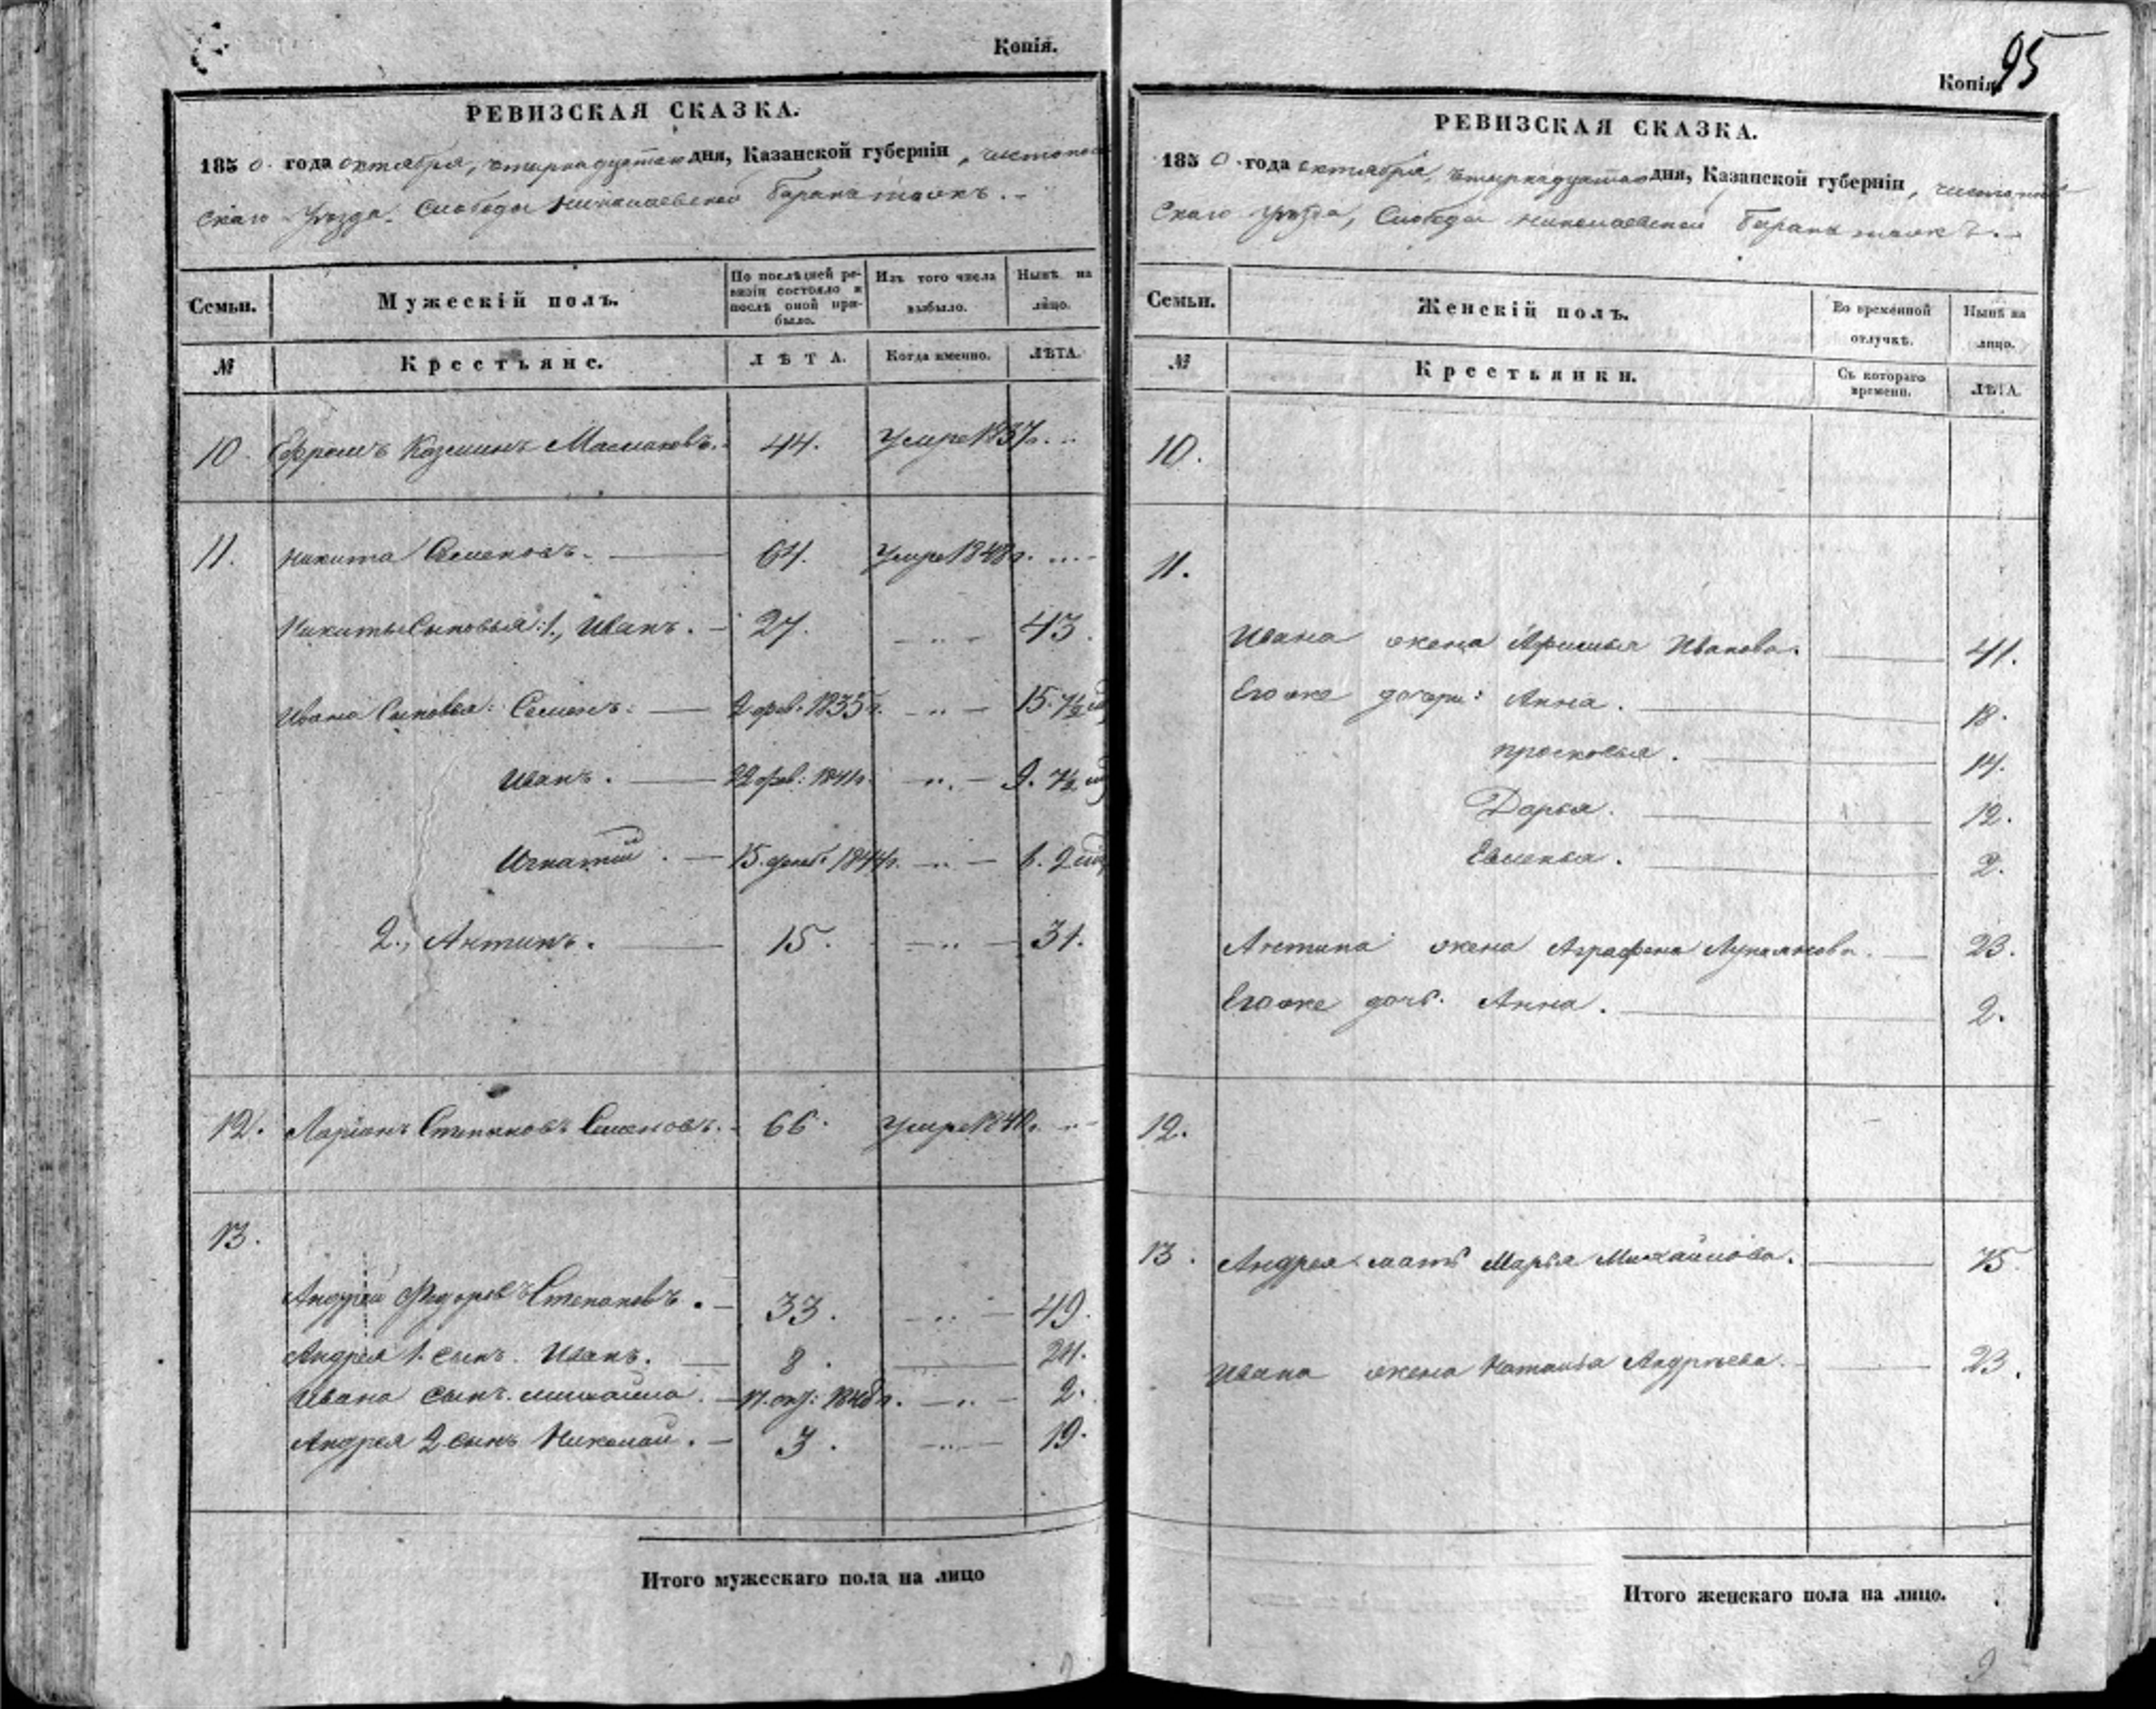 Копія.
РЕВИЗСКАЯ СКАЗКА.
1850 года октября, четырнадцатаго дня, Казанской губерніи, чистополь
скаго уѣзда, Слободы Николаевской Баранъ тожъ.
Семьи. Мужескій полъ. По послѣдней ревизіи состояло и послѣ оной прибыло. Изъ того числа выбыло. Нынѣ на лицо.
№ Крестьяне. ЛѢТА. Когда именно. ЛѢТА.
10. Ефремъ Козминъ 44. Умре 1837г.
11. Никита Семеновъ. 64. Умре 1848г.
Никиты Сыновья: 1., Иванъ. 27. 43.
Ивана Сыновья: Семенъ. 2 фев. 1835г. 15. 7½
Иванъ. 22 фев: 1841г. 9. 7½
Игнатій. 15. 1844г. 2
2., Антипъ. 15. 31.
12. Ларіонъ Степановъ Семеновъ. 66. Умре
13.
Андрей Федоровъ Степановъ. 33. 49.
Андрея 1. сынъ. Иванъ. 8. 24.
Ивана сынъ. михайла. 2.
Андрея 2 сынъ Николай. 3. 19.
Итого мужескаго пола на лицо
95
Копія.
РЕВИЗСКАЯ СКАЗКА.
1850 года октября, четырнадцатаго дня, Казанской губерніи, чистополь
скаго уѣзда, Слободы Николаевской Баранъ тожъ.
Семьи. Женскій полъ. Во временной отлучкѣ. Нынѣ на лицо.
№ Крестьянки. Съ котораго времени. ЛѢТА.
10.
11.
Ивана жена Афимья Иванова. 41.
Его же дочери: Анна. 18.
просковья. 14.
Дарья. 12.
2.
Антипа жена Аграфена Лукоянова. 23.
Его же дочь. Анна. 2.
12.
13. Андрея мать Марья Михайлова. 75.
Ивана жена Наталья Андрѣева. 23.
Итого женскаго пола на лицо.